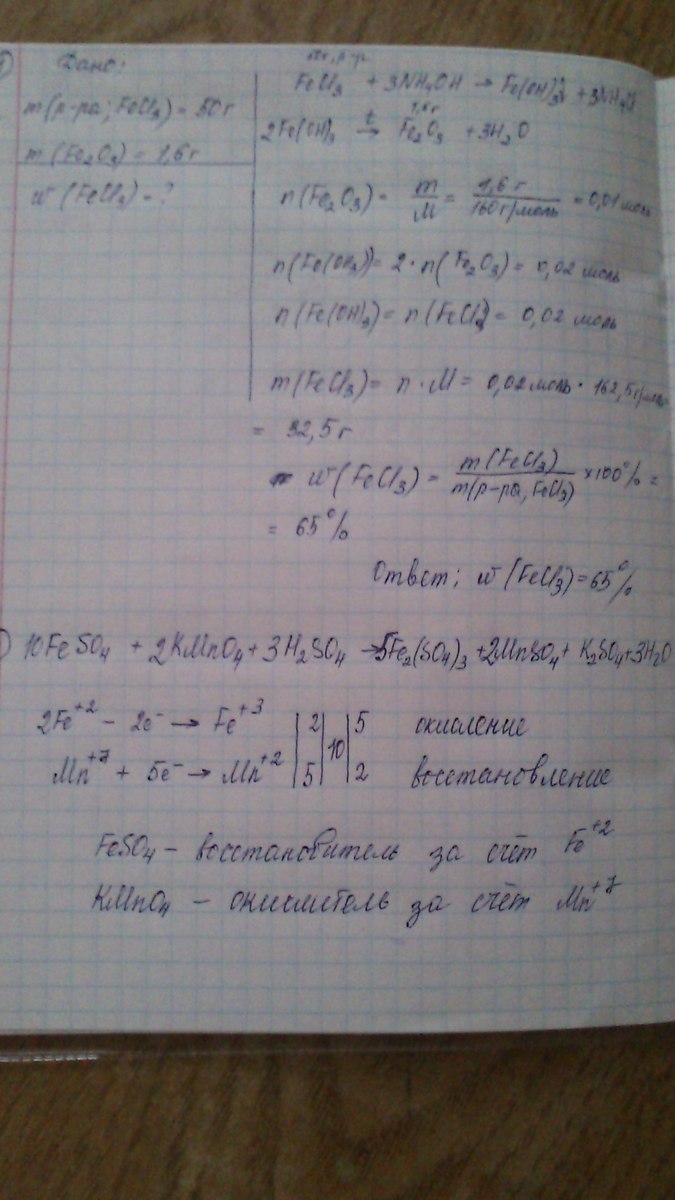 Дано:
m(р-ра; FeCl3) = 50 г
m(Fe2O3) = 1,6 г
w(FeCl3) - ?
FeCl3 + 3NH4OH → Fe(OH)3 + 3NH4Cl
1,6 г
2Fe(OH)3 t→ Fe2O3 + 3H2O
n(Fe2O3) = m/M = 1,6 г/160 г/моль = 0,01 моль
n(Fe(OH3)) = 2 · n(Fe2O3) = 0,02 моль
n(Fe(OH)3) = n(FeCl3) = 0,02 моль
m(FeCl3) = n · M = 0,02 моль · 162,5 г/моль
= 32,5 г
w(FeCl3) = m(FeCl3)/m(р-ра, FeCl3) ×100% =
= 65%
Ответ; w(FeCl3) = 65%
10FeSO4 + 2KMnO4 + 3H2SO4 → 5Fe2(SO4)3 + 2MnSO4 + K2SO4 + 3H2O
2Fe+2 - 2e- → Fe+3 | 2 | 10 | 5 окисление
Mn+7 + 5e- → Mn+2 | 5 | 2 восстановление
FeSO4 - восстановитель за счёт Fe+2
KMnO4 - окислитель за счёт Mn+7